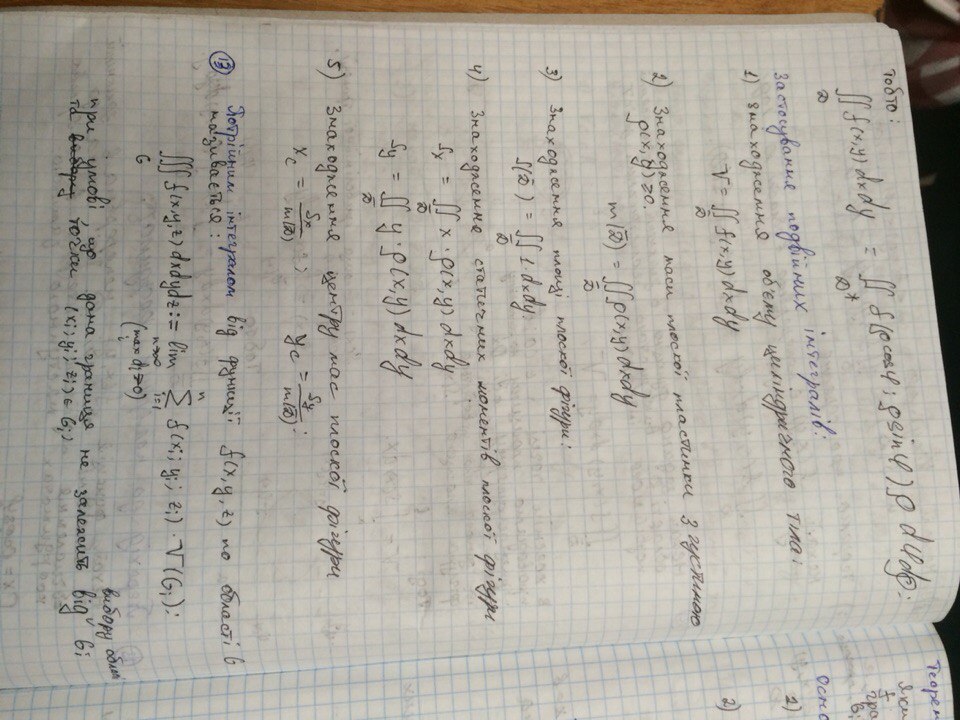 тобто:
∬ f(x,y) dxdy = ∬ f(ρcosφ; ρsinφ) ρ dφdρ:
D D*
Застосування подвійних інтегралів:
1) Знаходження об'єму циліндричного тіла:
V = ∬ f(x,y) dxdy
D̄
2) Знаходження маси плоскої пластинки з густиною
ρ(x,y) ≥ 0.
m(D̄) = ∬ ρ(x,y) dxdy
D̄
3) Знаходження площі плоскої фігури:
S(D̄) = ∬ 1·dxdy.
D̄
4) Знаходження статичних моментів плоскої фігури
Sx = ∬ x · ρ(x,y) dxdy
D̄
Sy = ∬ y · ρ(x,y) dxdy
D̄
5) Знаходження центру мас плоскої фігури
xc = Sx / m(D̄) ; yc = Sy / m(D̄) :
13 Потрійним інтегралом від функції f(x,y,z) по області G
називається:
∭ f(x,y,z) dxdydz := lim Σ f(xi; yi; zi) · V(Gi):
G n→∞ i=1 n
(max di→0)
i
вибору області
при умові, що дана границя не залежить від Gi
та вибору точки (xi; yi; zi) ∈ Gi)
Теорем
Яки
f
гра
Осно
1)
2)